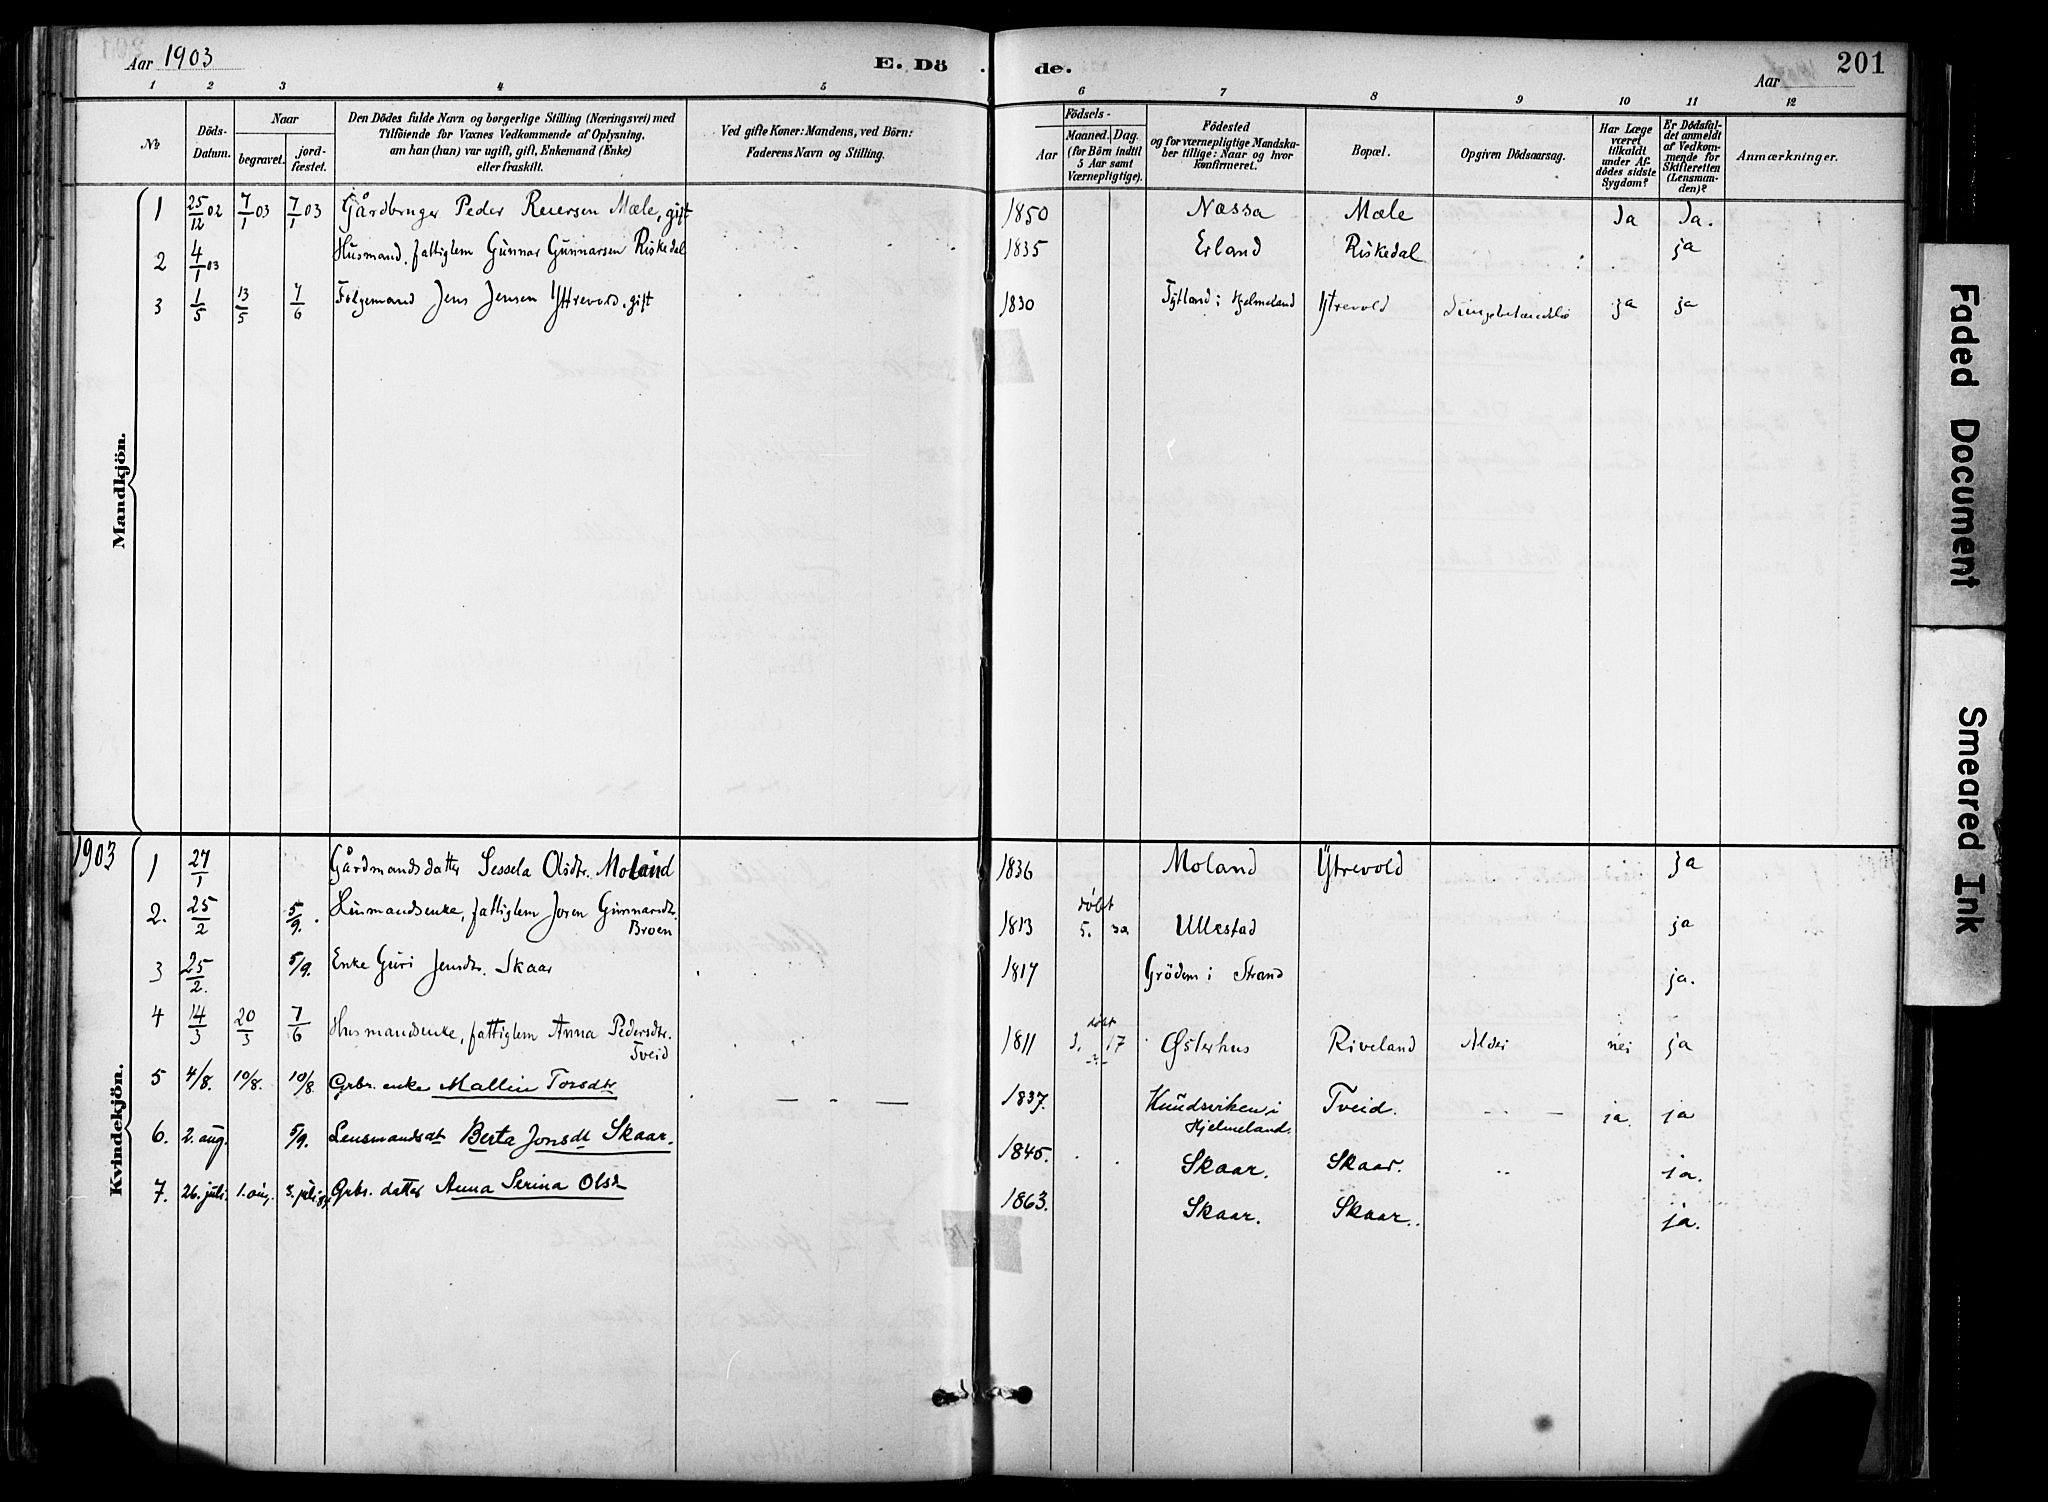 Aar 1903
E. Dö
de.
Aar
201
1 2 3 4 5 6 7 8 9 10 11 12
No
Döds-Datum.
Naar
begravet.
jord-fæstet.
Den Dödes fulde Navn og borgerlige Stilling (Næringsvei) med
Tilföiende for Voxnes Vedkommende af Oplysning,
om han (hun) var ugift, gift, Enkemand (Enke)
eller fraskilt.
Ved gifte Koner: Mandens, ved Börn:
Faderens Navn og Stilling.
Födsels-
Aar
Maaned. Dag.
(for Börn indtil
5 Aar samt
Værnepligtige).
Födested
og for værnepligtige Mandska-
ber tillige: Naar og hvor
konfirmeret.
Bopæl.
Opgiven Dödsaarsag.
Har Læge
været
tilkaldt
under Af-
dödes sidste
Sygdom?
Er Dödsfal-
det anmeldt
af Vedkom-
mende for
Skifteretten
(Lensman-
den)?
Anmærkninger.
Mandkjön.
1 25/12 02 7/1 03 7/1 03 Gårdbruger Peder Reiersen Mæle, gift 1850 Næssa Mæle Ja Ja.
2 4/1 03 Husmand, fattiglem Gunnar Gunnarsen Riskedal 1835 Erland Riskedal ja
3 1/5 13/5 7/6 Følgemand Jens Jensen Yttrevold, gift 1830 Tytland i Hjelmeland Ytrevold ja ja
1903
Kvindekjön.
1 27/1 Gårdmandsdatter Sessela Olsdtr. Moland 1836 Moland Ytrevold ja
2. 25/2 5/9. Husmandsenke, fattiglem Joren Gunnarsdtr. Broen 1813 døbt 5. 30 Ullestad ja
3 25/2. 5/9. Enke Guri Jensdtr. Skaar 1817 Grödem i Strand ja.
4 14/3 20/3 7/6 Husmandsenke, fattiglem Anna Pedersdtr. Tveid 1811 døbt 3. 17 Østerhus Riveland Alder nei ja
5 4/8. 10/8. 10/8. Grbr. enke Mallin Torsdtr 1837. Knudsviken i Hjelmeland. Tveid. — ja. ja
6. 2. aug. 5/9. Lensmandsdt Berta Jonsdt Skaar. 1845. Skaar. Skaar. ja.
7. 26. juli. 1. aug. Grbr. datter Anna Serina Olsd 1863. Skaar. Skaar. ja.
Faded Document
Smeared Ink